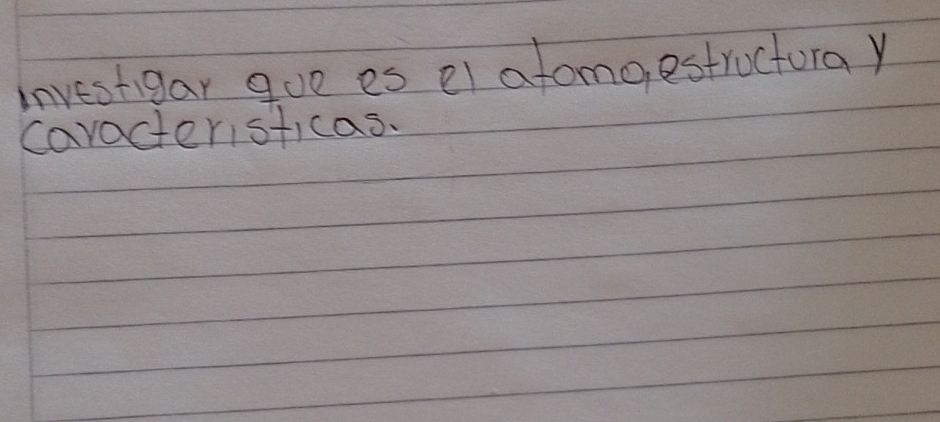 investigar que es el atomo, estructura y
caracteristicas.